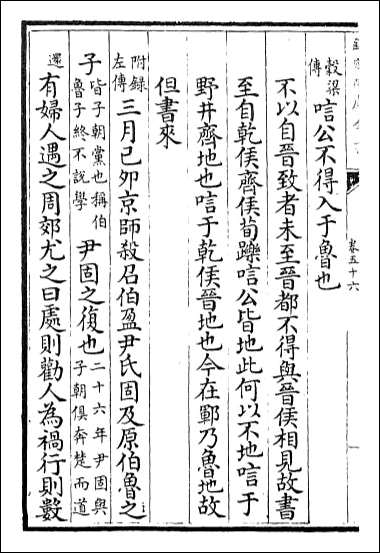 卷五十六
穀梁傳唁公不得入于魯也
不以自晉致者未至晉都不得與晉侯相見故書
至自乾侯齊侯荀躒唁公皆地此何以不地唁于
野井齊地也唁于乾侯晉地也今在鄆乃魯地故
但書來
附録左傳三月己卯京師殺召伯盈尹氏固及原伯魯之
子皆子朝黨也稱伯魯子終不說學尹固之復也二十六年尹固與子朝俱奔楚而道
還有婦人遇之周郊尤之曰處則勸人為禍行則數